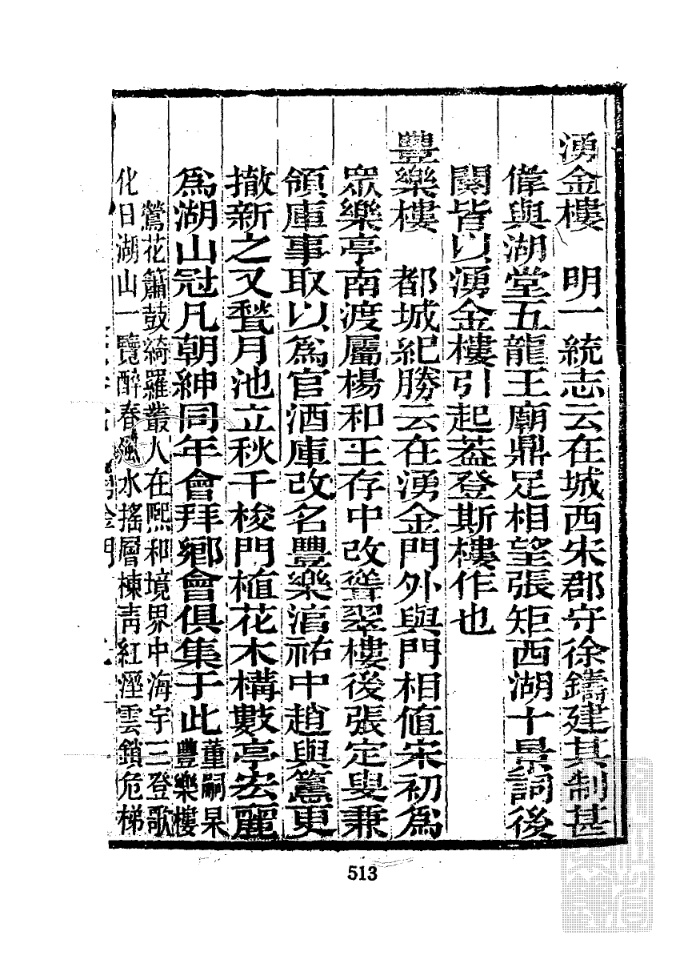 湧金樓　明一統志云在城西宋郡守徐鑄建其制甚
偉與湖堂五龍王廟鼎足相望張矩西湖十景詞後
闋皆以湧金樓引起葢登斯樓作也
豐樂樓　都城紀勝云在湧金門外與門相值宋初爲
眾樂亭南渡屬楊和王存中改聳翠樓後張定叟兼
領庫事取以爲官酒庫改名豐樂淳祐中趙與𥲅更
撤新之又甃月池立秋千梭門植花木構數亭宏麗
爲湖山冠凡朝紳同年會拜鄉會俱集于此
董嗣杲
豐樂樓
鶯花簫鼓綺羅叢人在熙和境界中海宇三登歌
化日湖山一覽醉春風水搖層棟靑紅溼雲鎖危梯
513